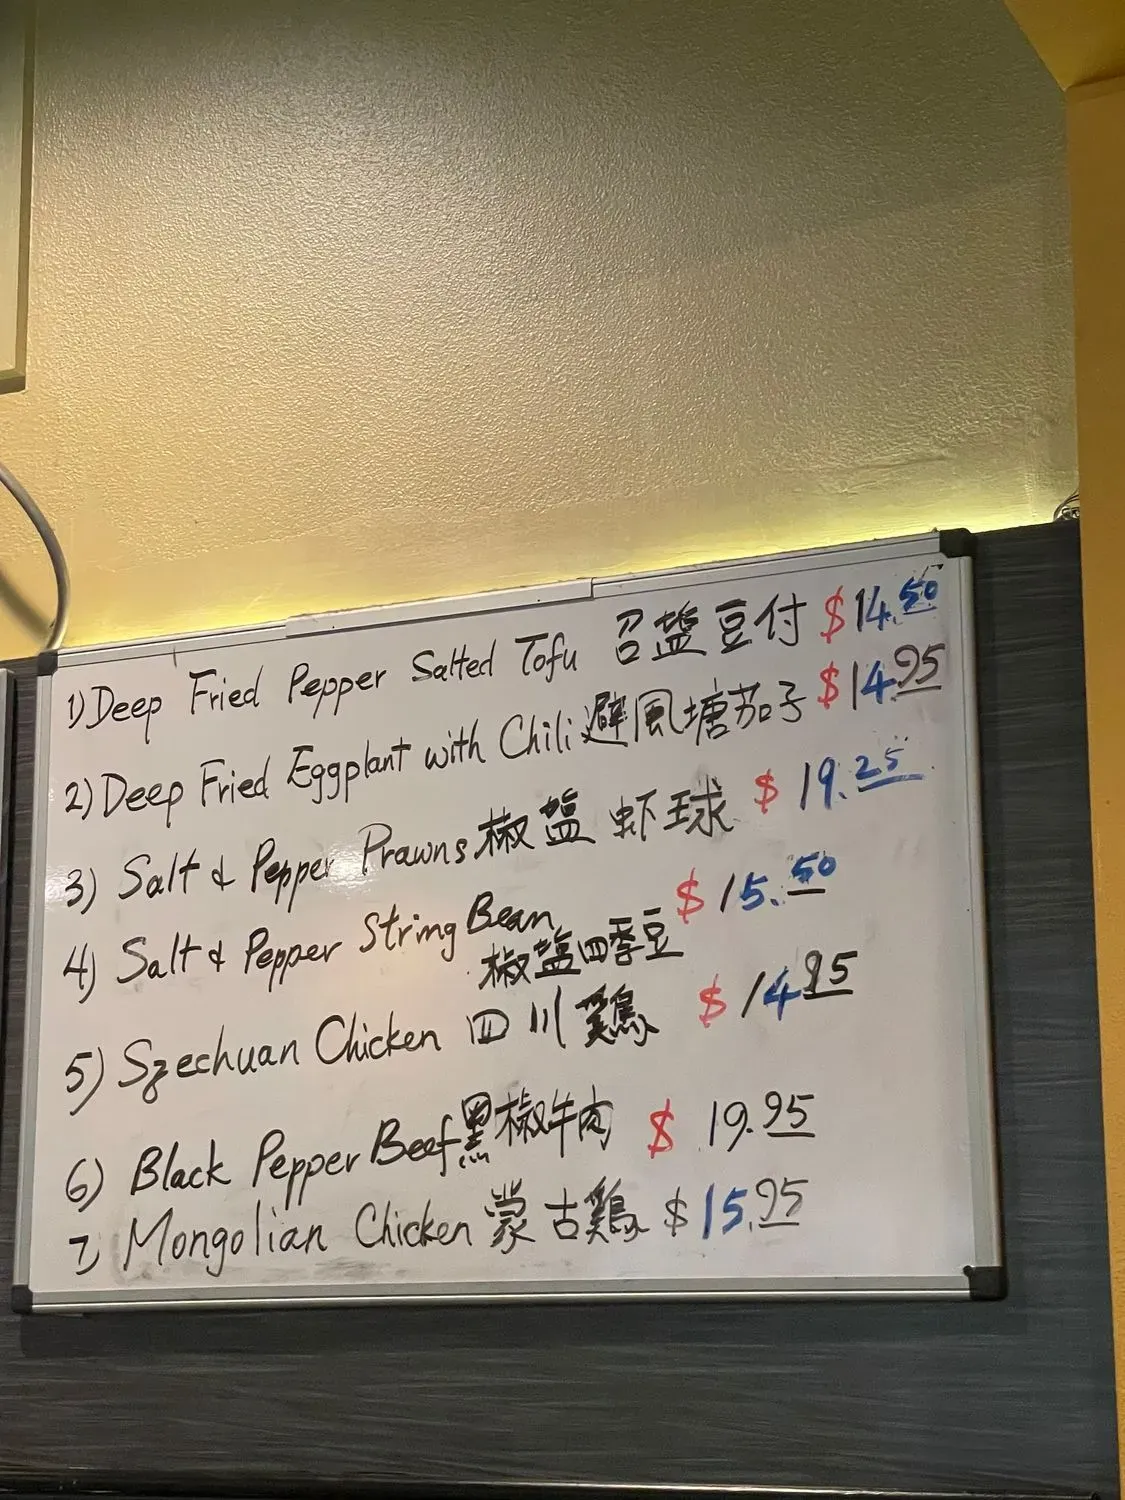 1) Deep Fried Pepper Salted Tofu 召盬豆付 $14.50
2) Deep Fried Eggplant with Chili 避風塘茄子 $14.95
3) Salt & Pepper Prawns 椒盬虾球 $19.25
4) Salt & Pepper String Bean $15.50
椒盬四季豆
5) Szechuan Chicken 四川鷄 $14.95
6) Black Pepper Beef 黑椒牛肉 $19.95
7) Mongolian Chicken 蒙古鷄 $15.95